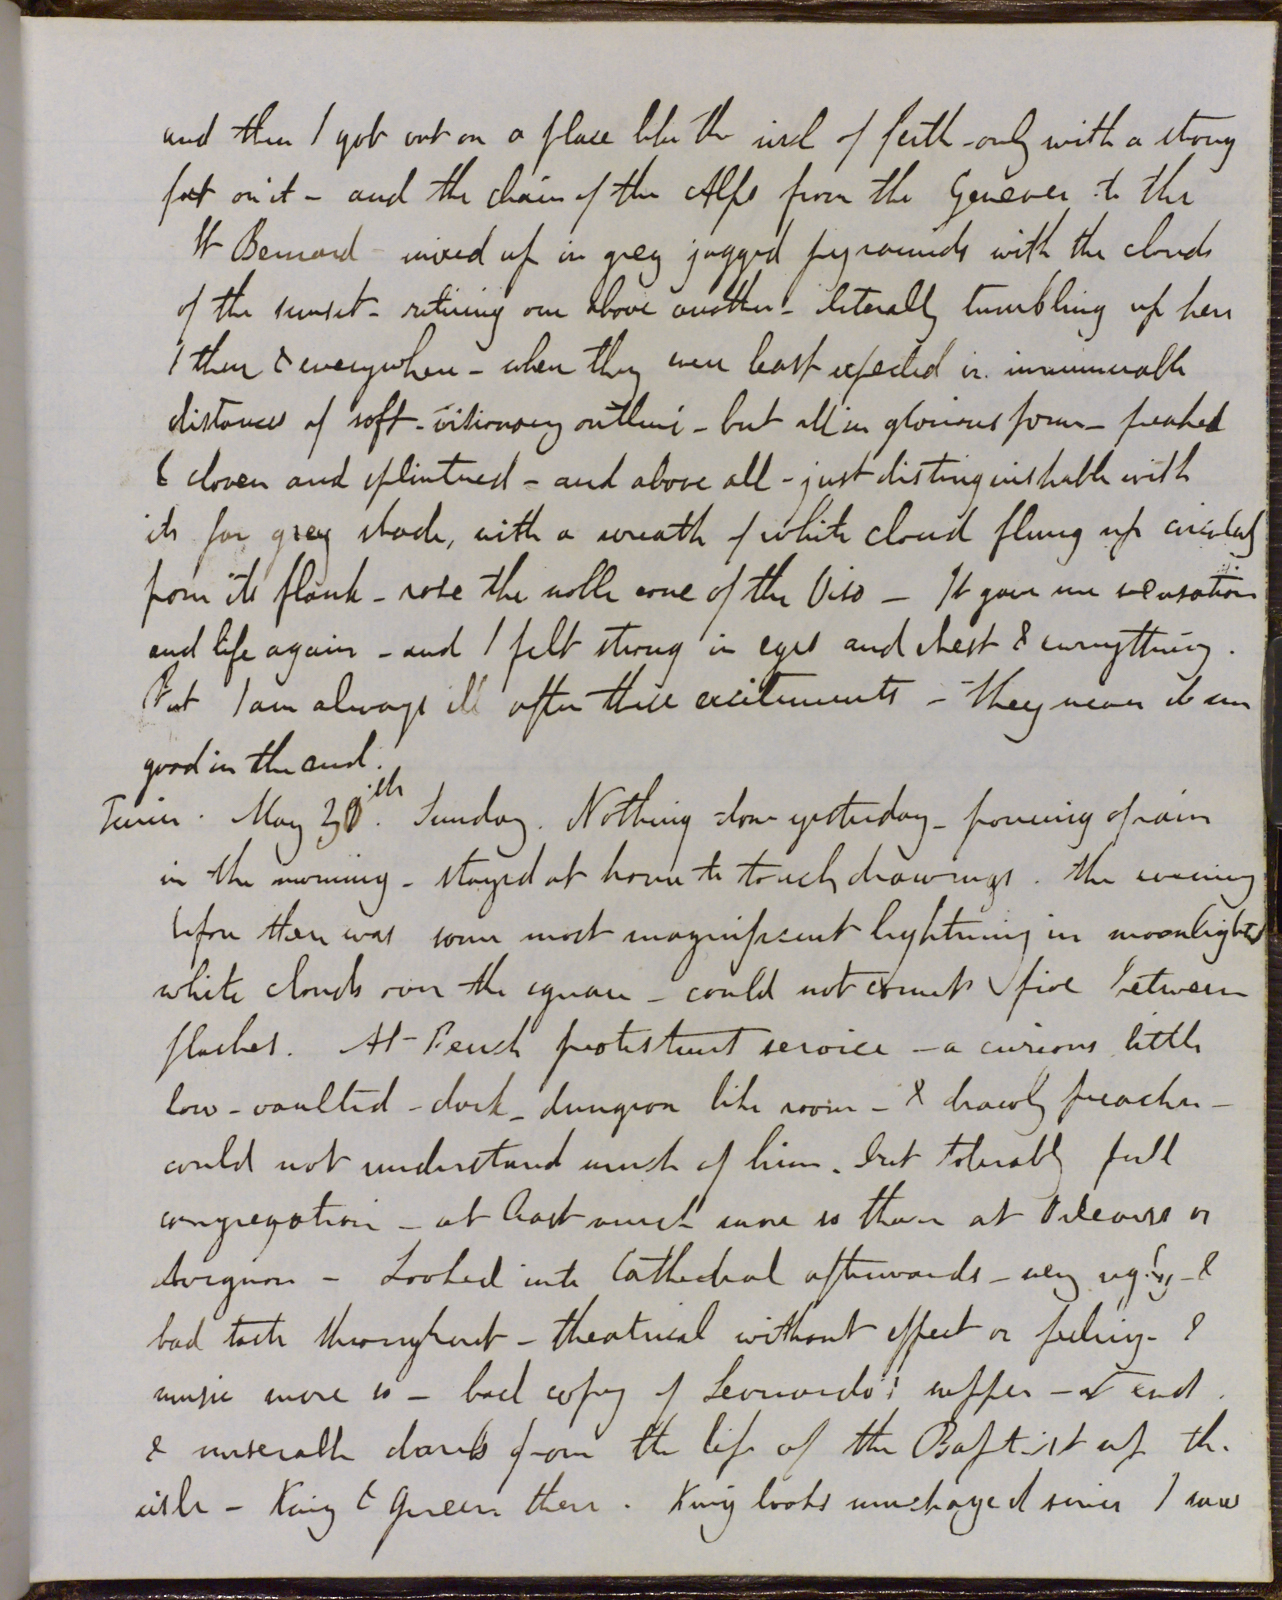 and then I got out on a place like the inch of Perth - only with a strong
fort on it - and the chain of the Alps from the Genever to the
St Bernard - mixed up in grey jagged pyramids with the clouds
of the sunset - retiring one above another - literally tumbling up here
& there & everywhere - when they were least expected in innumerable
distances of soft - visionary outline - but all in glorious form - peaked
& cloven and splintered - and above all - just distinguishable with
its far grey shade, with a wreath of white cloud flung up circularly
from its flank - rose the noble cone of the Viso - It gave me sensation
and life again - and I felt strong in eyes and chest & everything.
But I am always ill after these excitements - they never do me
good in the end.
Turin. May 30th. Sunday. Nothing done yesterday - pouring of rain
in the morning - stayed at home to touch drawings. The evening
before there was some most magnificent lightning in moonlighted
white clouds over the square - could not count five between
flashes. At French protestant service - a curious little
low - vaulted - dark - dungeon like room - & drawly preacher -
could not understand much of him. But tolerably full
congregation - at least much more so than at Orleans or
Avignon - Looked into Cathedral afterwards - very ugly - &
bad taste throughout - theatrical without effect or feeling - &
music more so - bad copy of Leonardo's supper - at end.
& miserable daubs from the life of the Baptist up the
aisle - King & Queen there. King looks unchanged since I saw